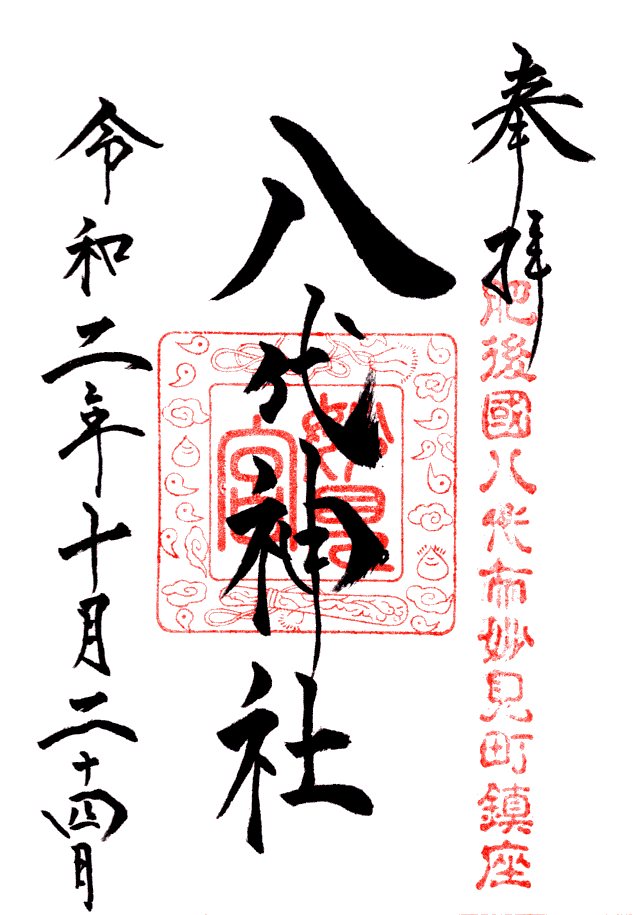 奉拝
肥後國八代市妙見町鎮座
八代神社
妙見宮
令和二年十月二十四月